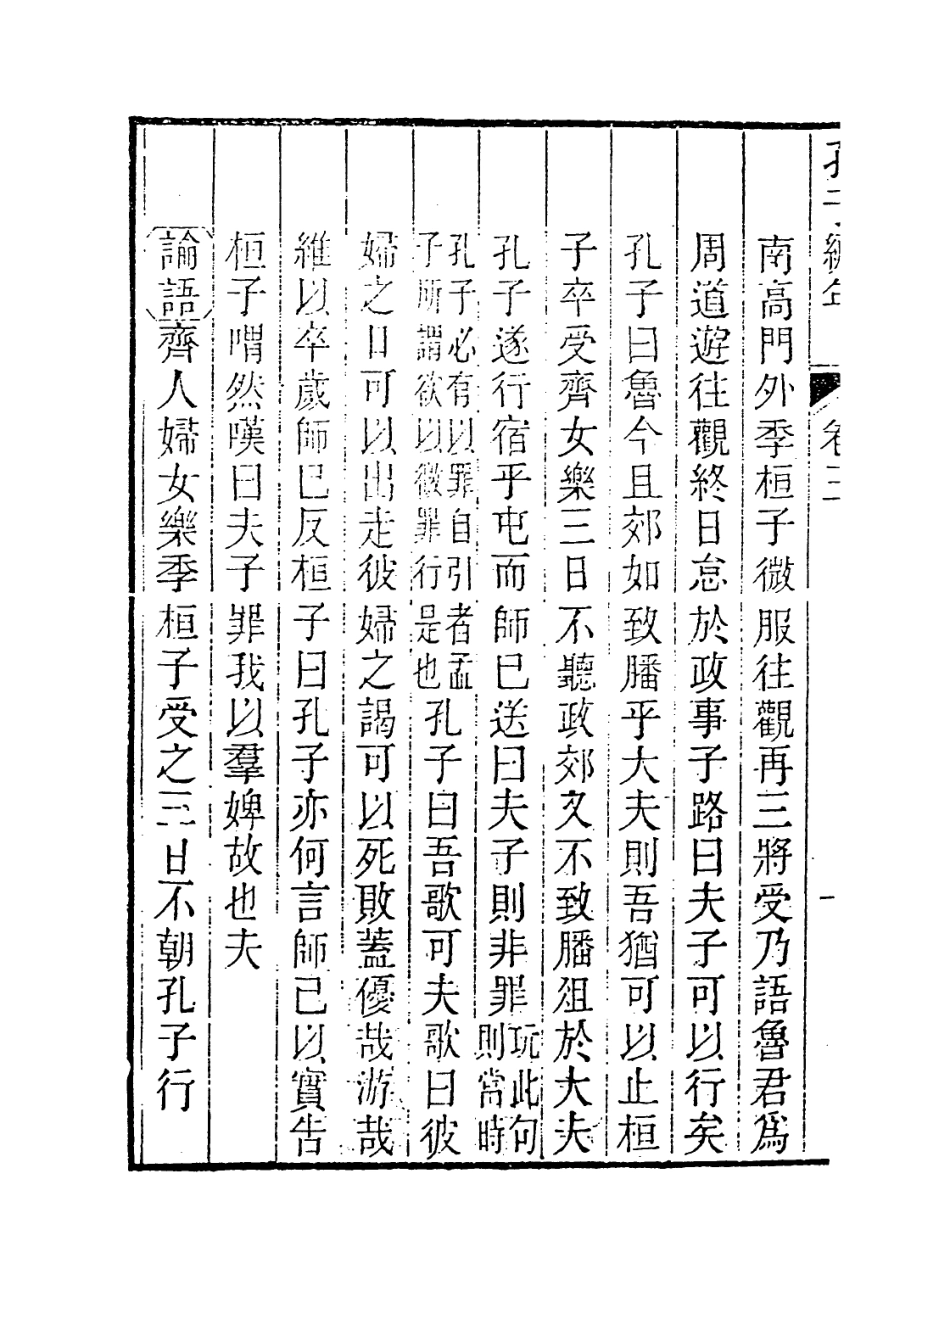 編年 卷三
南高門外季桓子微服往觀再三將受乃語魯君爲
周道遊往觀終日怠於政事子路曰夫子可以行矣
孔子曰魯今且郊如致膰乎大夫則吾猶可以止桓
子卒受齊女樂三日不聽政郊又不致膰俎於大夫
孔子遂行宿乎屯而師已送曰夫子則非罪玩此句則當時
孔子必有以罪自引者孟子所謂欲以微罪行是也孔子曰吾歌可夫歌曰彼
婦之口可以出走彼婦之謁可以死敗蓋優哉游哉
維以卒歲師已反桓子曰孔子亦何言師已以實告
桓子喟然嘆曰夫子罪我以羣婢故也夫
論語齊人婦女樂季桓子受之三日不朝孔子行